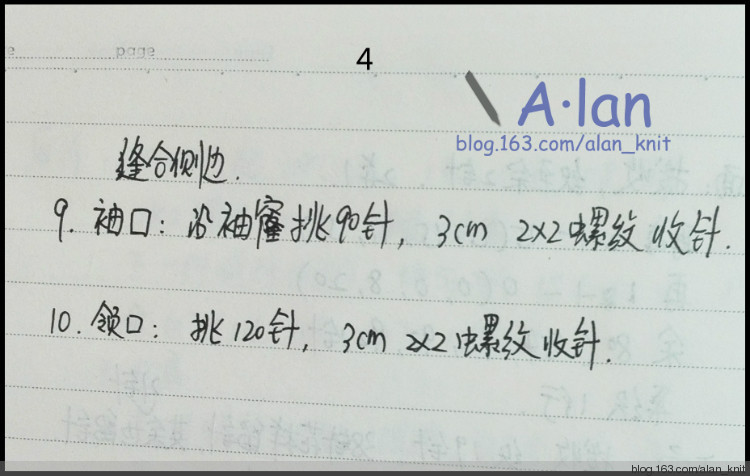 page
4
A·lan
blog.163.com/alan_knit
缝合侧边.
9. 袖口: 沿袖窿挑90针, 3cm 2×2螺纹收针.
10. 领口: 挑120针, 3cm 2×2螺纹收针.
blog.163.com/alan_knit